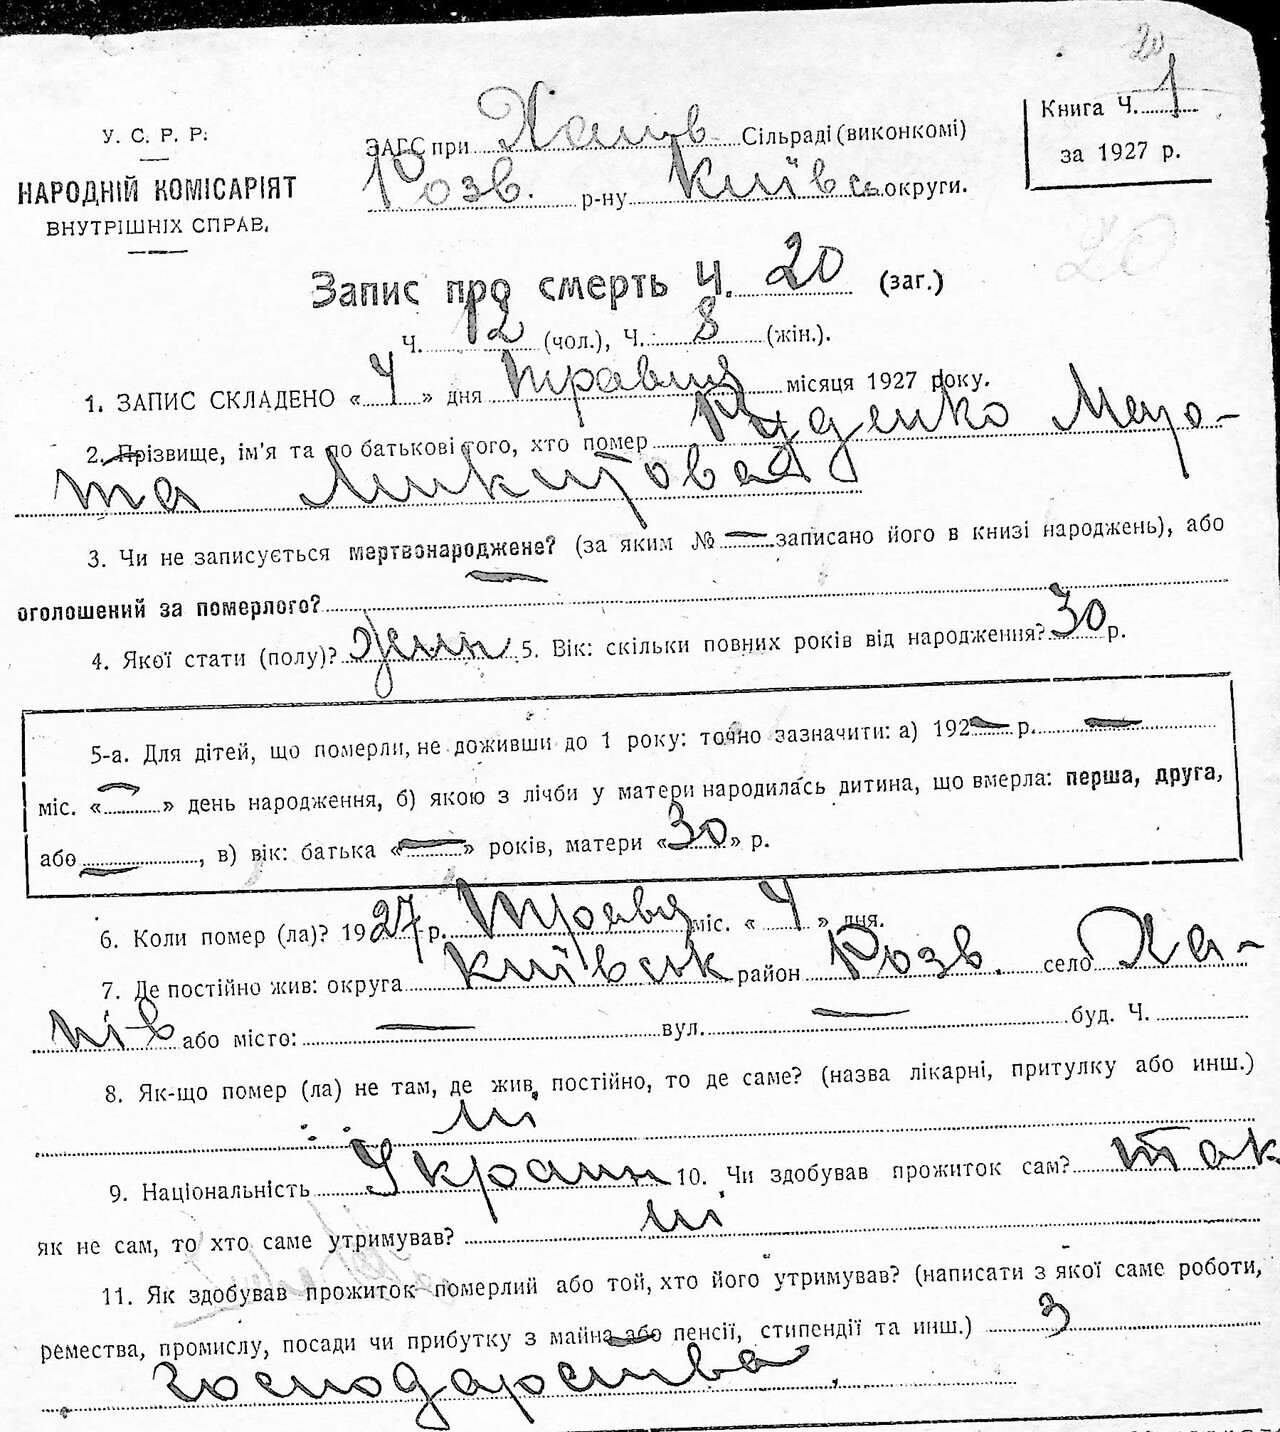 20
У. С. Р. Р.
НАРОДНІЙ КОМІСАРІЯТ
ВНУТРІШНІХ СПРАВ.
ЗАГС при Хапів Сільраді (виконкомі)
Розв. р-ну Київсь округи.
Книга Ч. 1
за 1927 р.
20
Запис про смерть Ч. 20 (заг.)
Ч. 12 (чол.), Ч. 8 (жін.).
1. ЗАПИС СКЛАДЕНО «4» дня травня місяця 1927 року.
2. Прізвище, ім'я та по батькові того, хто помер Руденко
та Микитова
3. Чи не записується мертвонароджене? (за яким № — записано його в книзі народжень), або
оголошений за померлого?
4. Якої стати (полу)? жін 5. Вік: скільки повних років від народження? 30 р.
5-а. Для дітей, що померли, не доживши до 1 року: точно зазначити: а) 192— р. —
міс. «—» день народження, б) якою з лічби у матери народилась дитина, що вмерла: перша, друга,
або —, в) вік: батька «—» років, матери «30» р.
6. Коли помер (ла)? 1927 р. Травня міс. «4» дня.
7. Де постійно жив: округа Київськ район Розв. село Ха-
пів або місто: — вул. — буд. Ч.
8. Як-що помер (ла) не там, де жив, постійно, то де саме? (назва лікарні, притулку або инш.)
ні
9. Національність Украин 10. Чи здобував прожиток сам? так
як не сам, то хто саме утримував? ні
11. Як здобував прожиток померлий або той, хто його утримував? (написати з якої саме роботи,
ремества, промислу, посади чи прибутку з майна або пенсії, стипендії та инш.) З
господарства